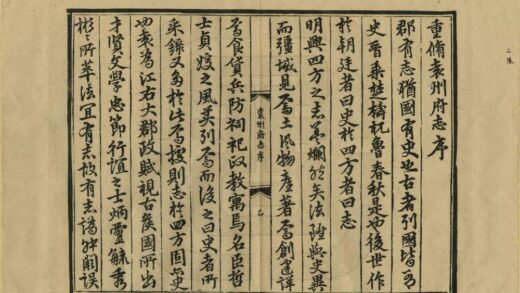 重脩袁州府志序
郡有志猶國有史也古者列國皆有
史晉乘楚檮杌魯春秋是也後世作
於朝廷者曰史於四方者曰志
明興四方之志盖爛然矣法雖與史異
而疆域見焉土風物產著焉創建詳
焉食貨兵防祠祀政教寓焉名臣哲
士貞媛之風美列焉而後之曰史者所
采錄又多於此焉援則志於四方固史
也袁為江右大郡政賦視古侯國所出
才賢文學忠節行誼之士炳靈毓秀
彬彬所萃法宜有志故有志譌舛闕誤
袁州府志序
乙